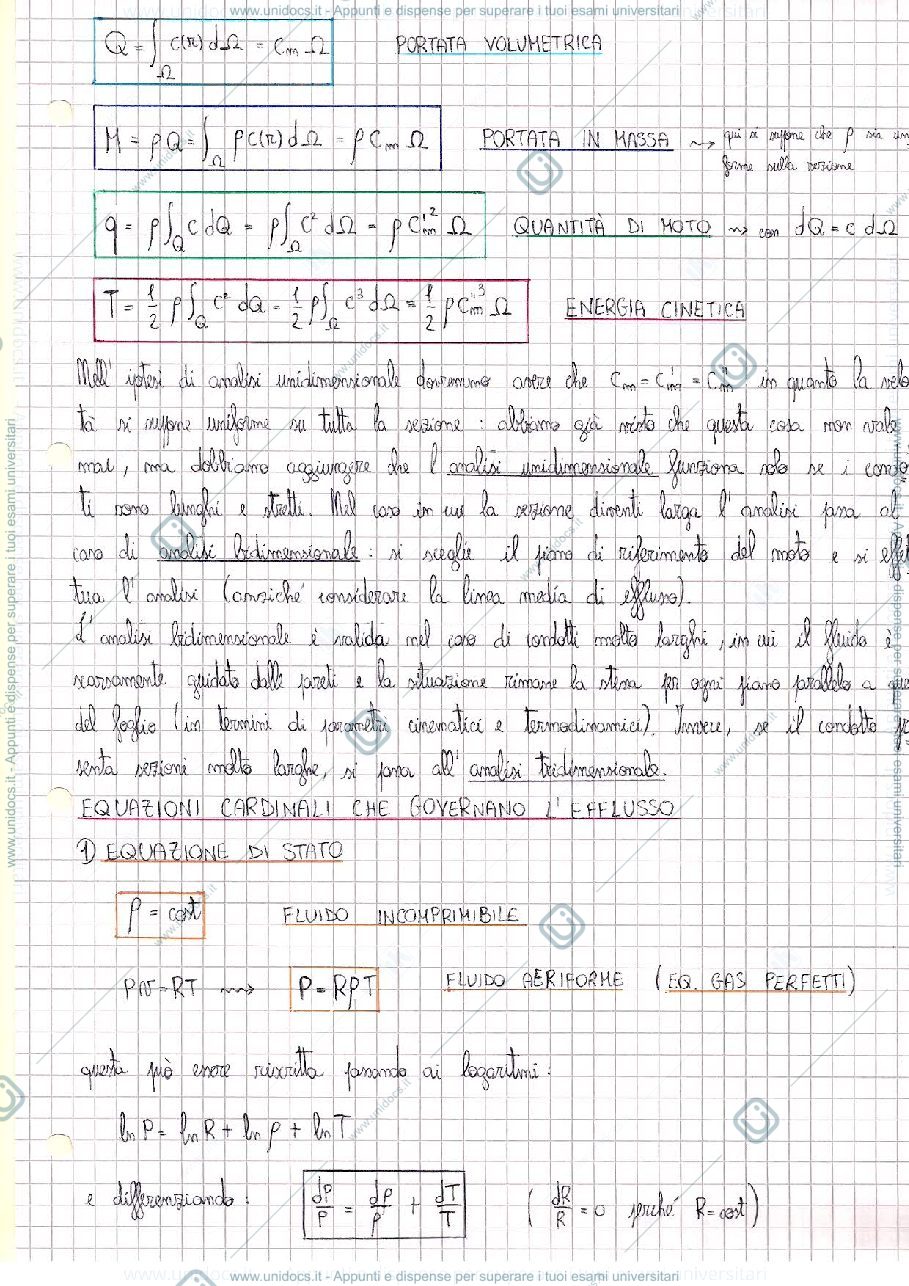 www.unidocs.it - Appunti e dispense per superare i tuoi esami universitari
Q = ∫_Ω c(r) dΩ = Cm Ω PORTATA VOLUMETRICA
M = ρQ = ∫_Ω ρ c(r) dΩ = ρ Cm Ω PORTATA IN MASSA ⇝ qui si suppone che ρ sia uni
forme sulla sezione
q = ρ ∫_Q c dQ = ρ ∫_Ω c² dΩ = ρ C'm² Ω QUANTITÀ DI MOTO ⇝ con dQ = c dΩ
T = 1/2 ρ ∫_Q c² dQ = 1/2 ρ ∫_Ω c³ dΩ = 1/2 ρ C''m³ Ω ENERGIA CINETICA
Nell'ipotesi di analisi unidimensionale dovremmo avere che Cm = C'm = C''m in quanto la velo
tà si suppone uniforme su tutta la sezione : abbiamo già visto che questa cosa non vale
mai, ma dobbiamo aggiungere che l'analisi unidimensionale funziona solo se i condo
ti sono lunghi e stretti. Nel caso in cui la sezione diventi larga l'analisi passa al
caso di analisi bidimensionale : si sceglie il piano di riferimento del moto e si effet
tua l'analisi (anziché considerare la linea media di efflusso).
L'analisi bidimensionale è valida nel caso di condotti molto larghi, in cui il fluido è
scarsamente guidato dalle pareti e la situazione rimane la stessa per ogni piano parallelo a que
del foglio (in termini di parametri cinematici e termodinamici). Invece, se il condotto pr
senta sezioni molto larghe, si passa all'analisi tridimensionale.
EQUAZIONI CARDINALI CHE GOVERNANO L'EFFLUSSO
1) EQUAZIONE DI STATO
ρ = cost FLUIDO INCOMPRIMIBILE
Pv = RT ⇝ P = RρT FLUIDO AERIFORME (EQ. GAS PERFETTI)
questa può essere riscritta passando ai logaritmi :
ln P = ln R + ln ρ + ln T
e differenziando : dP/P = dρ/ρ + dT/T ( dR/R = 0 perché R = cost )
www.unidocs.it - Appunti e dispense per superare i tuoi esami universitari